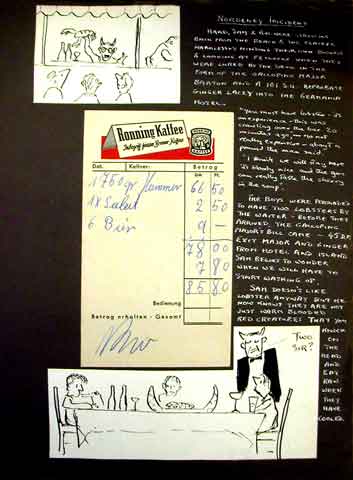 NORDERNEY INCIDENT
SAM & WERE STROLLING
BACK FROM THE BEACH & THE
HARMLESSLY MINDING THEIR OWN
& LOOKING AT WHEN THEY
WERE LURED BY THE DEVIL IN THE
FORM OF THE GALLOPING MAJOR
BARTON AND A S.U. REPROBATE
GINGER LACEY INTO THE GERMANIA
HOTEL.
"YOU MUST HAVE LOBSTER - ITS
EXPERIENCE - THIS WAS
CRAWLING OVER THE BAR 20
MINUTES AGO,
REALLY EXPENSIVE - ABOUT
EACH" THE MAJOR SAID.
"I THINK WE WILL TOO, HERE
ITS BLOODY NICE AND THE YOU
CAN REALLY TASTE THE SHERRY
IN THE SOUP."
THE BOYS WERE PERSUADED
TO HAVE TWO LOBSTERS BY
THE WAITER - BEFORE THEY
ARRIVED, THE GALLOPING
MAJOR'S BILL CAME - 45DM
EXIT MAJOR AND GINGER
FROM HOTEL AND ISLAND
SAM BEGINS TO WONDER
WHEN WE WILL HAVE TO
START WASHING UP.
SAM DOESN'T LIKE
LOBSTER ANYWAY BUT HE
NOW KNOWS THEY ARE NOT
JUST WARM BLOODED
RED CREATURES THAT YOU
KNOCK
ON
THE
HEAD
AND
EAT
RAW
WHEN
THEY
HAVE
COOLED.
Ronning Kaffee
Inbegriff feinster Bremer Kaffees
Dat. Kellner: Betrag
DM Pf.
1 750 gr. Hummer 66 50
1x Salat 2 50
6 Bier 9 —
78 00
7 80
85 80
Bedienung
Betrag erhalten - Gesamt
TWO
SIR?